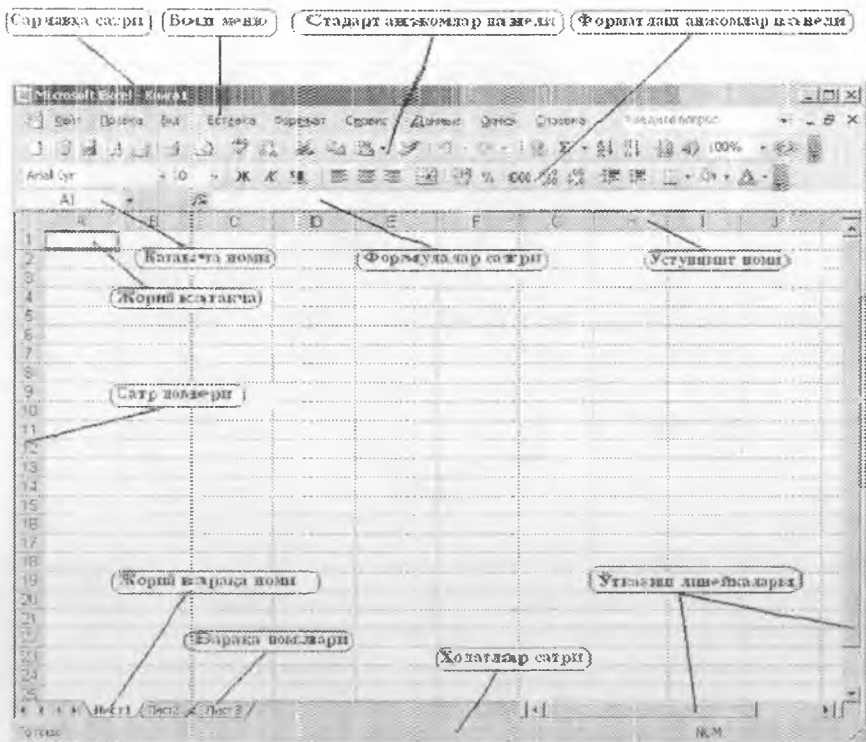 Сарлавҳа сатри Бош меню Стадарт анжомлар панели Форматлаш анжомлар панели
Microsoft Excel - Книга1
Файл Правка Вид Вставка Формат Сервис Данные Окно Справка Введите вопрос
100%
Arial Cyr 10 Ж К Ч % 000
A1 fx
A B C D E F G H I J
1
2
Катакча номи Формулалар сатри Устуннинг номи
3
4
Жорий катакча
5
6
7
8
9
Сатр номери
10
11
12
13
14
15
16
17
18
19
Жорий варақа номи Ўтказиш линейкалари
20
21
22
Варақа номлари
23
Ҳолатлар сатри
24
25
Лист1 Лист2 Лист3
Готово NUM